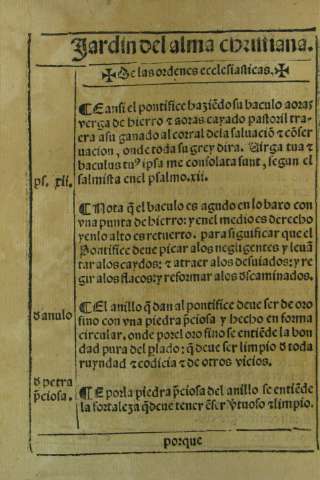 Jardin del alma christiana.
✠De las ordenes ecclesiasticas.✠
¶E ansi el pontifice haziẽdo su baculo aoras
verga de hierro & aoras cayado pastoril tra-
era a su ganado al corral dela saluaciõ & cõser
uacion, onde toda su grey dira. Uirga tua &
baculus tu⁹ ipsa me consolata sunt, segun el
ps. xii.
salmista enel psalmo.xii.
¶Nota q̃ el baculo es agudo en lo baxo con
vna punta de hierro: y enel medio es derecho
y enlo alto es retuerto. para significar que el
Pontifice deue picar alos negligentes y leuã
tar alos caydos: & atraer alos desuiados: y re
gir alos flacos: y reformar alos dscaminados.
d anulo
¶El anillo q̃ dan al pontifice deue ser de oro
fino con vna piedra p̃ciosa y hecho en forma
circular, onde por el oro fino se entiẽde la bon
dad pura del plado: q̃ deue ser limpio d toda
ruyndad & codicia & de otros vicios.
d petra
p̃ciosa.
¶E por la piedra p̃ciosa del anillo se entiẽde
la fortaleza q̃ deue tener & ser v̓tuoso & limpio.
porque